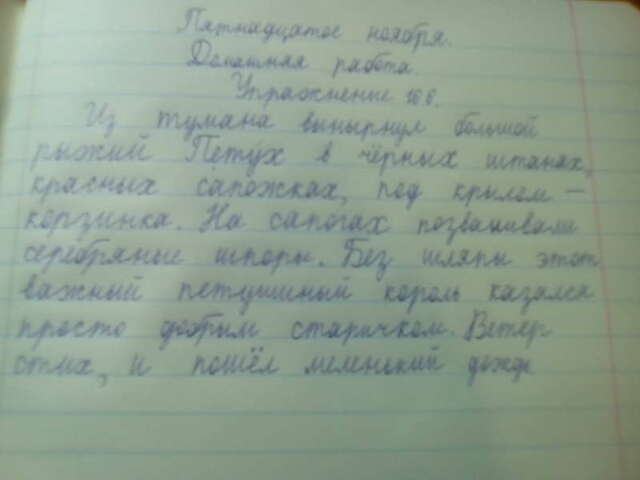 Пятнадцатое ноября.
Домашняя работа.
Упражнение 166.
Из тумана вынырнул большой
рыжий Петух в чёрных штанах,
красных сапожках, под крылом –
корзинка. На сапогах позванивали
серебряные шпоры. Без шляпы этот
важный петушиный король казался
просто добрым старичком. Ветер
стих, и пошёл меленский дождь